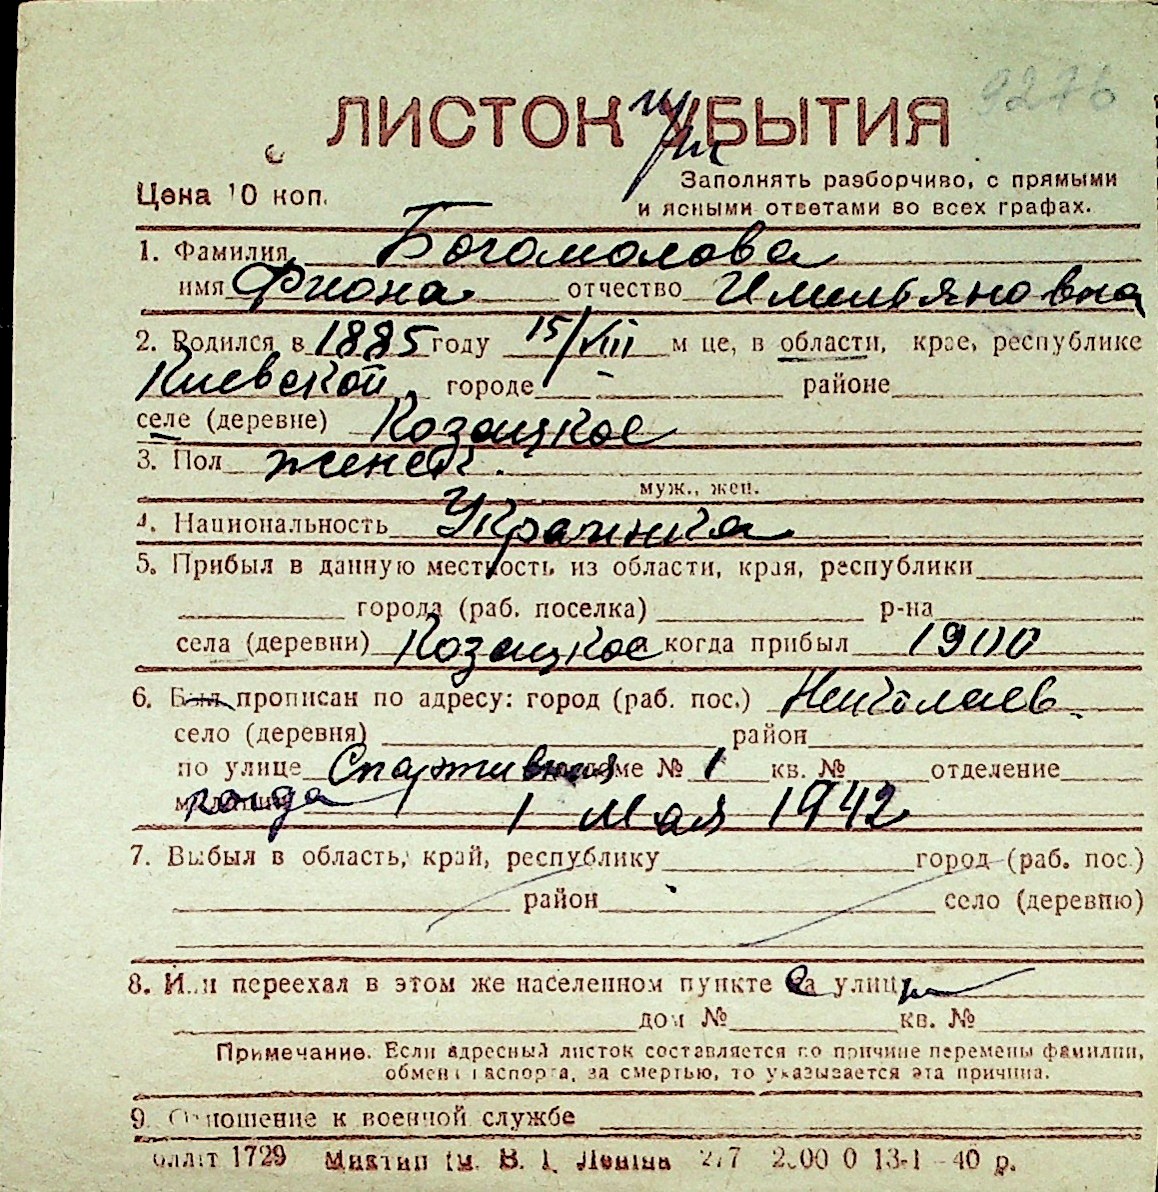 9276
ЛИСТОК УБЫТИЯ
Цена 10 коп.
Заполнять разборчиво, с прямыми
и ясными ответами во всех графах.
1. Фамилия Богомолова
имя Фиона отчество Имильяновна
2. Родился в 1885 году 15/VIII м-це, в области, крае, республике
Киевской городе районе
селе (деревне) Козацкое
3. Пол женск.
муж., жен.
4. Национальность Украинка
5. Прибыл в данную местность из области, края, республики
города (раб. поселка) р-на
села (деревни) Козацкое когда прибыл 1900
6. Был прописан по адресу: город (раб. пос.) Николаев
село (деревня) район
по улице Спартивная доме № 1 кв. № отделение
милиции когда 1 Мая 1942
7. Выбыл в область, край, республику город (раб. пос.)
район село (деревню)
8. Или переехал в этом же населенном пункте на улицу
дом № кв. №
Примечание. Если адресный листок составляется по причине перемены фамилии,
обмен паспорта, за смертью, то указывается эта причина.
9. Отношение к военной службе
1729 им. В. І. Леніна 2/7 13-1 -40 р.